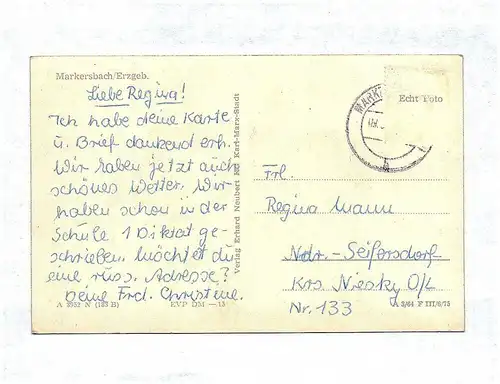 Markersbach/Erzgeb.
Liebe Regina!
Ich habe deine Karte
u. Brief dankend erh.
Wir haben jetzt auch
schönes Wetter. Wir
haben schon in der
Schule 1 Diktat ge-
schrieben. Möchtest du
eine russ. Adresse?
Deine Frd. Christine.
A 3952 N (123 B)
EVP DM —15
Verlag Erhard Neubert KG Karl-Marx-Stadt
MARK
Echt Foto
b
Frl.
Regina Mann
Ndr.-Seifersdorf
Krs Niesky O/L
Nr. 133
A 3/64 F III/6/75